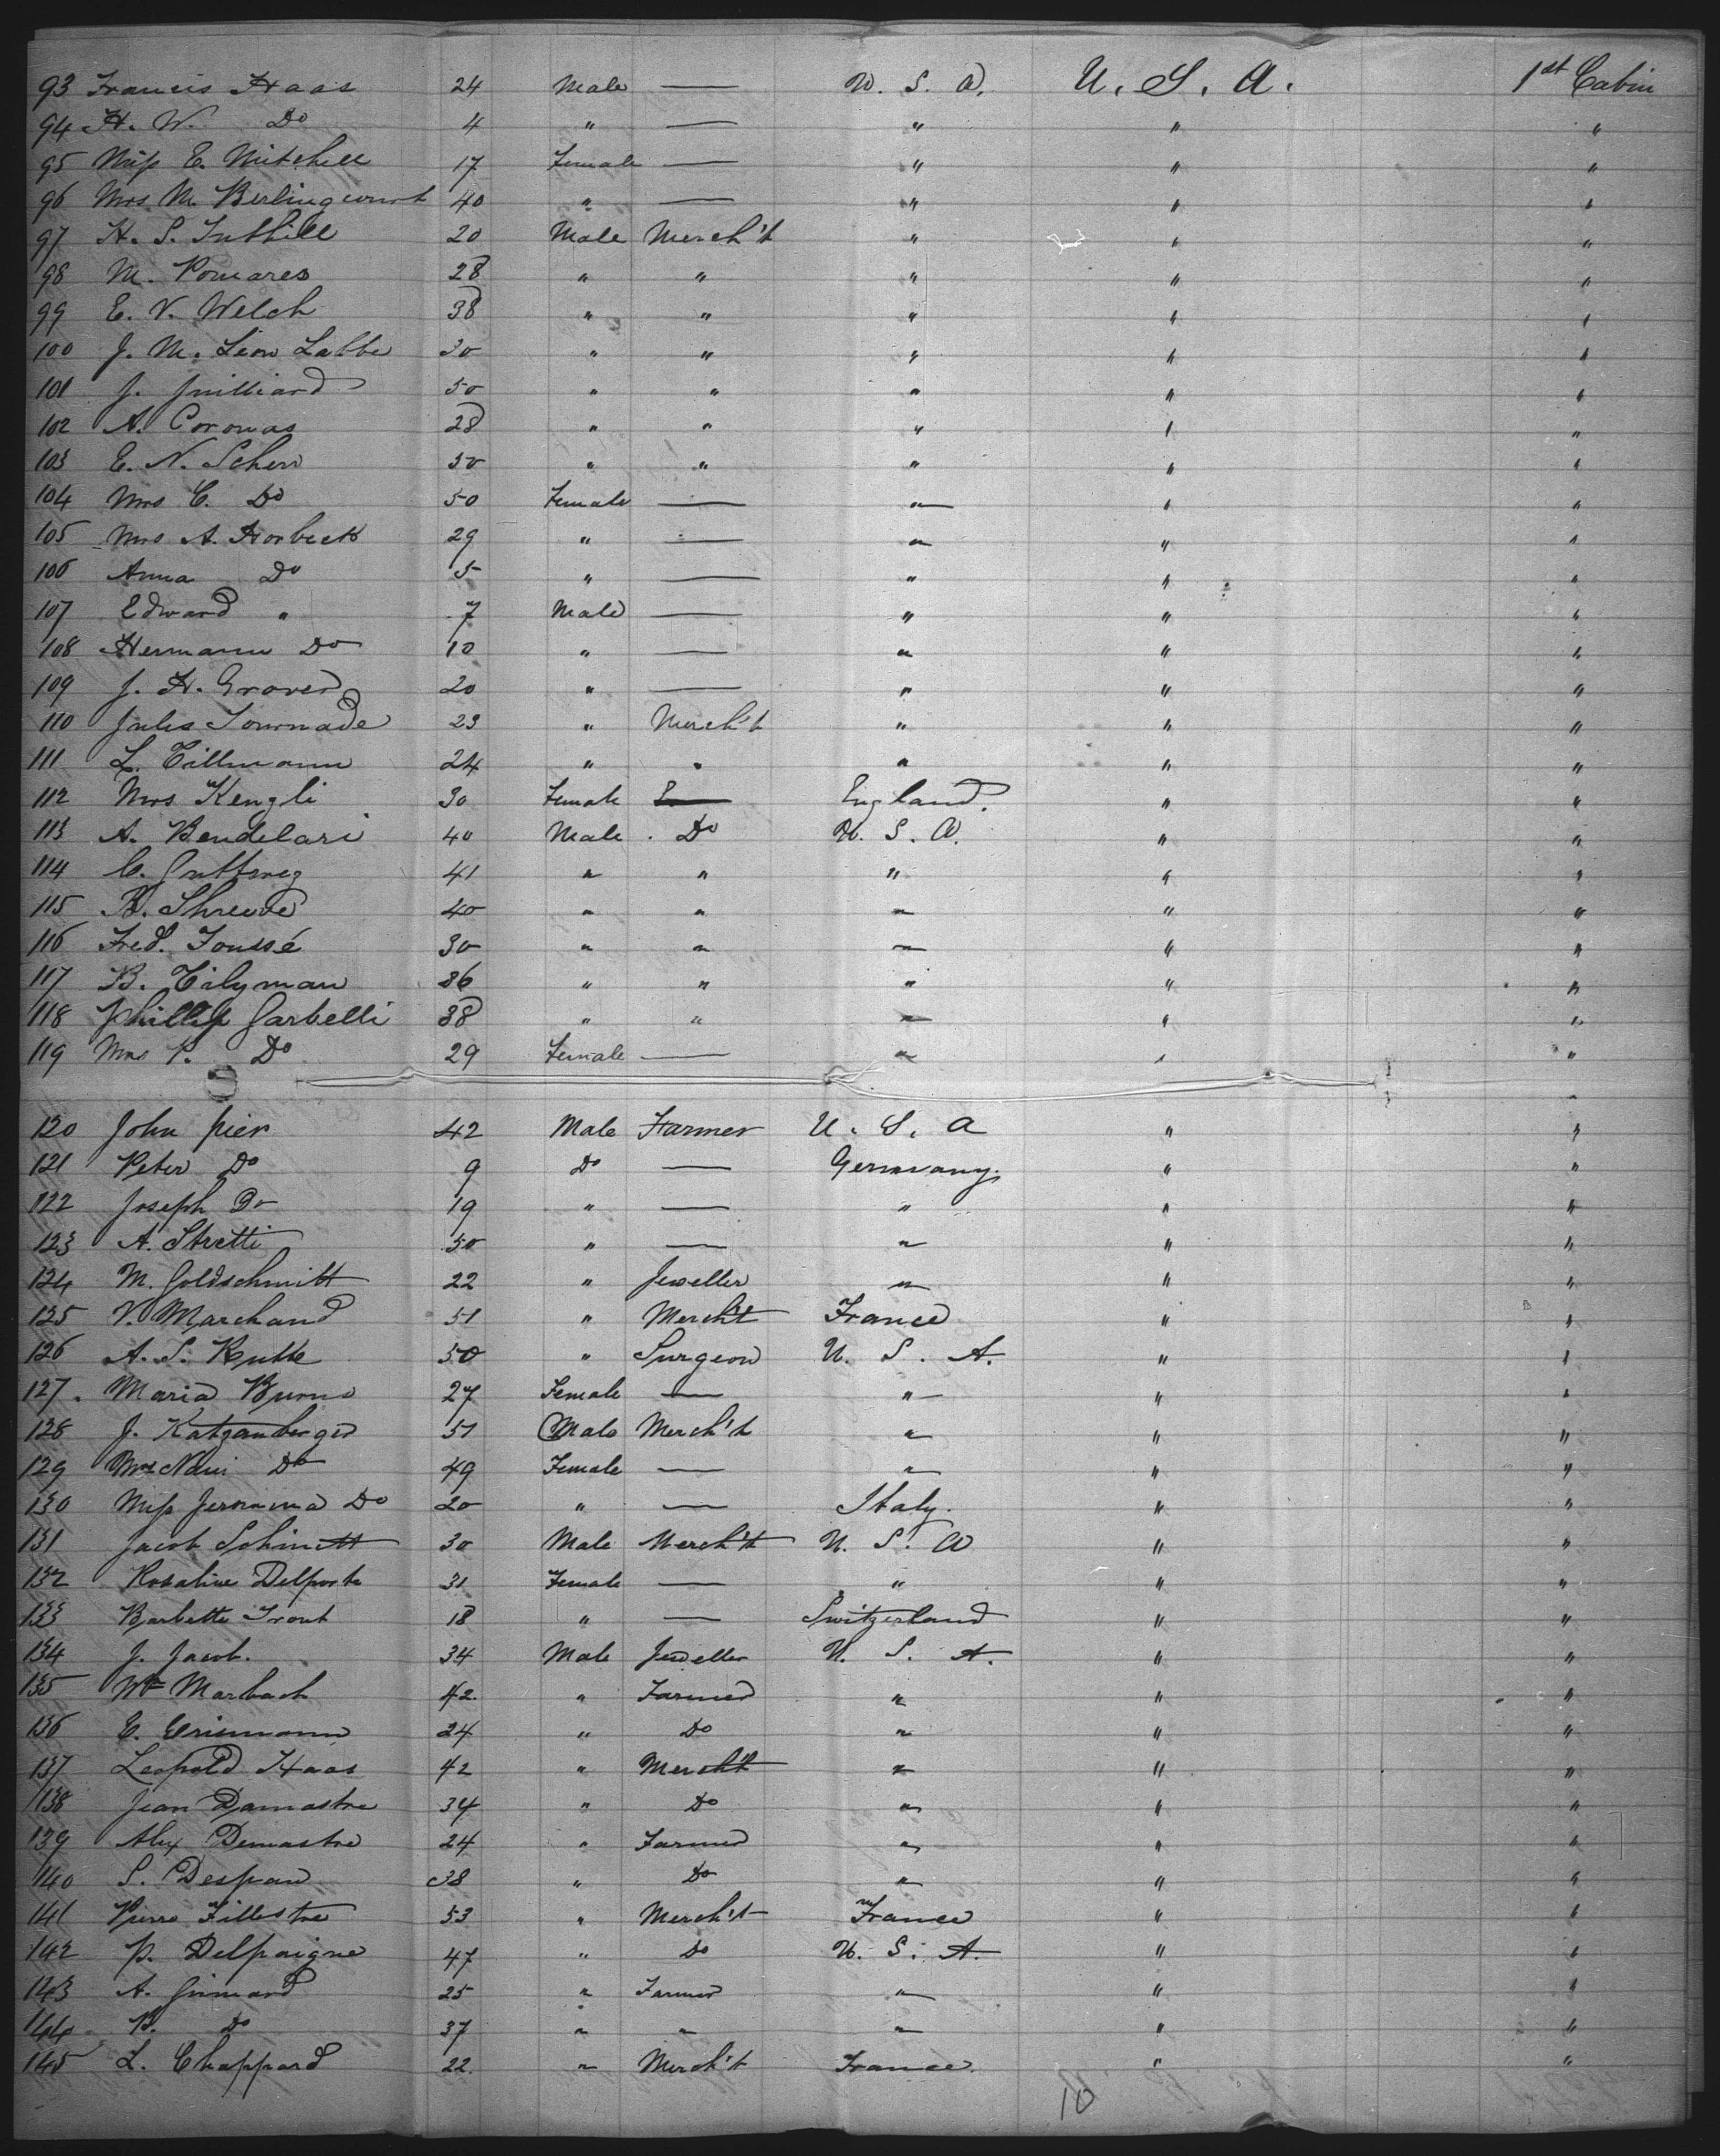 93 Francis Haas 24 Male — U. S. A. U. S. A. 1st Cabin
94 H. W. Do 4 " — " " "
95 Miss E. Mitchell 17 Female — " " "
96 Mrs M. Berlingcourt 40 " — " " "
97 H. S. Tuthill 20 Male Merch't " " "
98 M. Pomares 28 " " " " "
99 E. V. Welch 38 " " " " "
100 J. M. Leon Labbe 30 " " " " "
101 J. Juilliard 50 " " " " "
102 A. Coronas 28 " " " " "
103 E. N. Scherr 50 " " " " "
104 Mrs C. Do 50 Female — " " "
105 Mrs A. Horbeck 29 " — " " "
106 Anna Do 5 " — " " "
107 Edward " 7 Male — " " "
108 Hermann Do 10 " — " " "
109 J. H. Grover 20 " — " " "
110 Jules Tournade 23 " Merch't " " "
111 L. Tillmann 24 " " " " "
112 Mrs Kengli 30 Female — England. " "
113 A. Bendelari 40 Male Do U. S. A. " "
114 C. 41 " " " " "
115 B. Shreve 40 " " " " "
116 Fred. Toussé 30 " " " " "
117 B. Tilyman 36 " " " " "
118 Phillip Garbelli 38 " " " " "
119 Mrs P. Do 29 Female — " " "
120 John Pier 42 Male Farmer U. S. A " "
121 Peter Do 9 Do — Germany. " "
122 Joseph Do 19 " — " " "
123 A. Stretti 50 " — " " "
124 M. Goldschmitt 22 " Jeweller " " "
125 V. Marchand 51 " Merch't France " "
126 A. S. 50 " Surgeon U. S. A. " "
127 Maria Burns 27 Female — " " "
128 J. Katzanberger 51 Male Merch't " " "
129 Mrs Do 49 Female — " " "
130 Miss Jeromina Do 20 " — Italy. " "
131 Jacob Schmitt 30 Male Merch't U. S. A " "
132 Rosaline Delporte 31 Female — " " "
133 Barbette Trout 18 " — Switzerland " "
134 J. Jacob. 34 Male Jeweller U. S. A. " "
135 Wm Marbach 42. " Farmer " " "
136 E. Erismann 24 " Do " " "
137 Leopold Haas 42 " Merch't " " "
138 Jean Damastre 34 " Do " " "
139 Alex Demastre 24 " Farmer " " "
140 S. Despau 38 " Do " " "
141 Pierre Fillestre 53 " Merch't France " "
142 P. Delpaigne 47 " Do U. S. A. " "
143 A. 25 " Farmer " " "
144 B. Do 37 " " " " "
145 L. Chappard 22. " Merch't France. " "
10